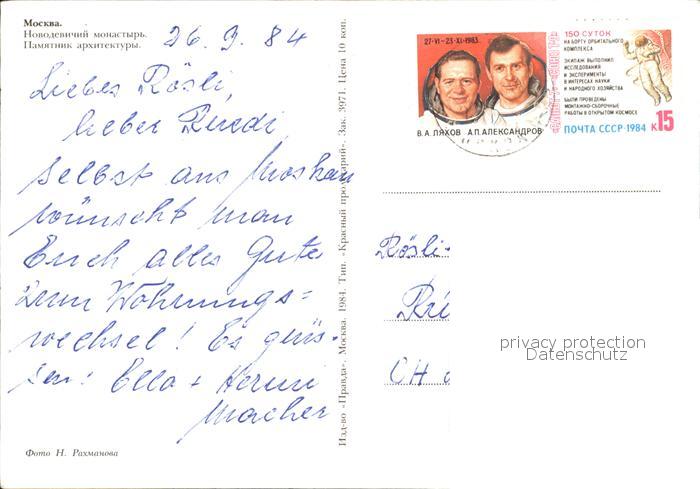 Москва.
Новодевичий монастырь.
Памятник архитектуры.
26. 9. 84
Liebes Rösli,
lieber Ruedi
selbst aus Moskau
wünscht man
Euch alles Gute
zum Wohnungs=
wechsel! Es grüs-
sen: Ella + Hermi
Macher
Фото Н. Рахманова
Изд-во «Правда». Москва. 1984. Тип. «Красный пролетарий». Зак. 3971. Цена 10 коп.
27-VI-23-XI-1983
В.А.ЛЯХОВ А.П.АЛЕКСАНДРОВ
150 СУТОК
НА БОРТУ ОРБИТАЛЬНОГО
КОМПЛЕКСА
ЭКИПАЖ ВЫПОЛНИЛ
ИССЛЕДОВАНИЯ
И ЭКСПЕРИМЕНТЫ
В ИНТЕРЕСАХ НАУКИ
И НАРОДНОГО ХОЗЯЙСТВА
БЫЛИ ПРОВЕДЕНЫ
МОНТАЖНО-СБОРОЧНЫЕ
РАБОТЫ В ОТКРЫТОМ КОСМОСЕ
ПОЧТА СССР·1984 К15
Rösli-
CH
privacy protection
Datenschutz